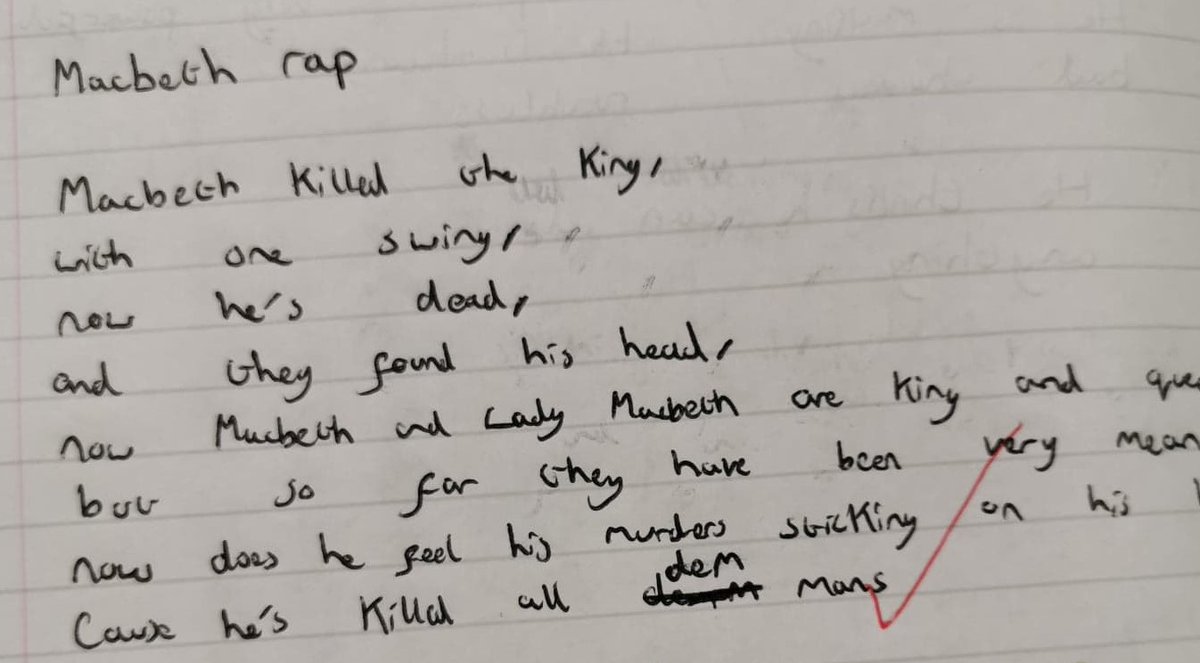 Macbeth rap
Macbeth killed the King,
with one swing,
now he's dead,
and they found his head,
now Macbeth and Lady Macbeth are King and que
but so far they have been very mean
now does he feel his murders sticking on his
Cause he's killed all dem mans